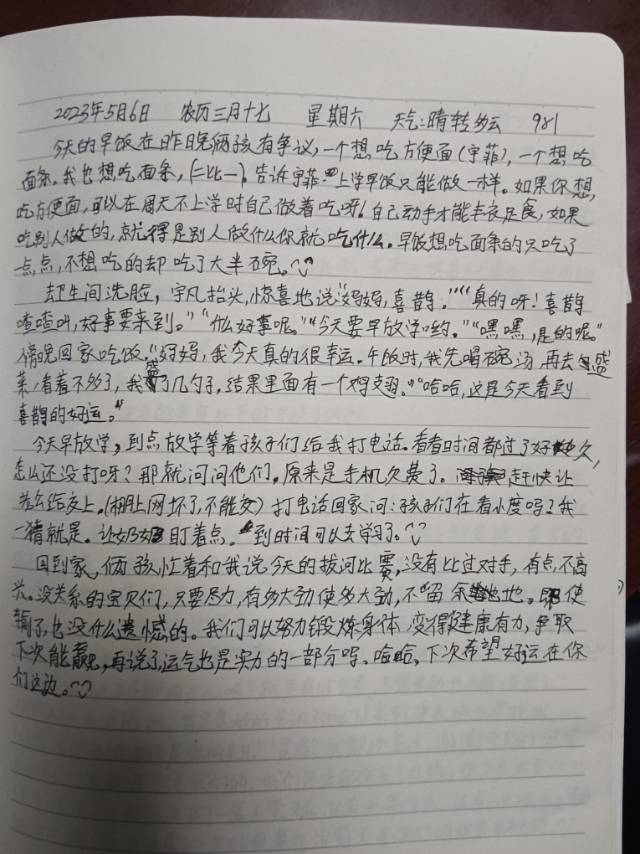 2023年5月6日 农历三月十七 星期六 天气:晴转多云 981
今天的早饭在昨晚俩孩有争议,一个想吃方便面(宇菲),一个想吃
面条。我也想吃面条,(二比一)。告诉宇菲:上学早饭只能做一样。如果你想
吃方便面,可以在周天不上学时自己做着吃呀!自己动手才能丰衣足食,如果
吃别人做的,就得是别人做什么你就吃什么。早饭想吃面条的只吃了
一点点,不想吃的却吃了大半碗。
卫生间洗脸,宇凡抬头,惊喜地说“妈妈,喜鹊。”“真的呀!喜鹊
喳喳叫,好事要来到。”“什么好事呢。”“今天要早放学哟。”“嘿嘿,是的呢。”
傍晚回家吃饭。“妈妈,我今天真的很幸运。午饭时,我先喝碗汤,再去盛
菜,看着不多了,我盛了几勺子,结果里面有一个鸡翅。”“哈哈,这是今天看到
喜鹊的好运。”
今天早放学,到点放学等着孩子们给我打电话。看看时间都过了好久,
怎么还没打呀?那就问问他们。原来是手机欠费了。赶快让
老公给交上。(相上网坏了,不能交)打电话回家问:孩子们在看小度吗?我
一猜就是。让奶奶盯着点。到时间可以去学习了。
回到家,俩孩忙着和我说今天的拔河比赛,没有比过对手,有点不高
兴。没关系的宝贝们,只要尽力,有多大劲使多大劲,不留余地。即使
输了,也没什么遗憾的。我们可以努力锻炼身体,变得健康有力,争取
下次能赢,再说了运气也是实力的一部分吗。哈哈。下次希望好运在你
们这边。